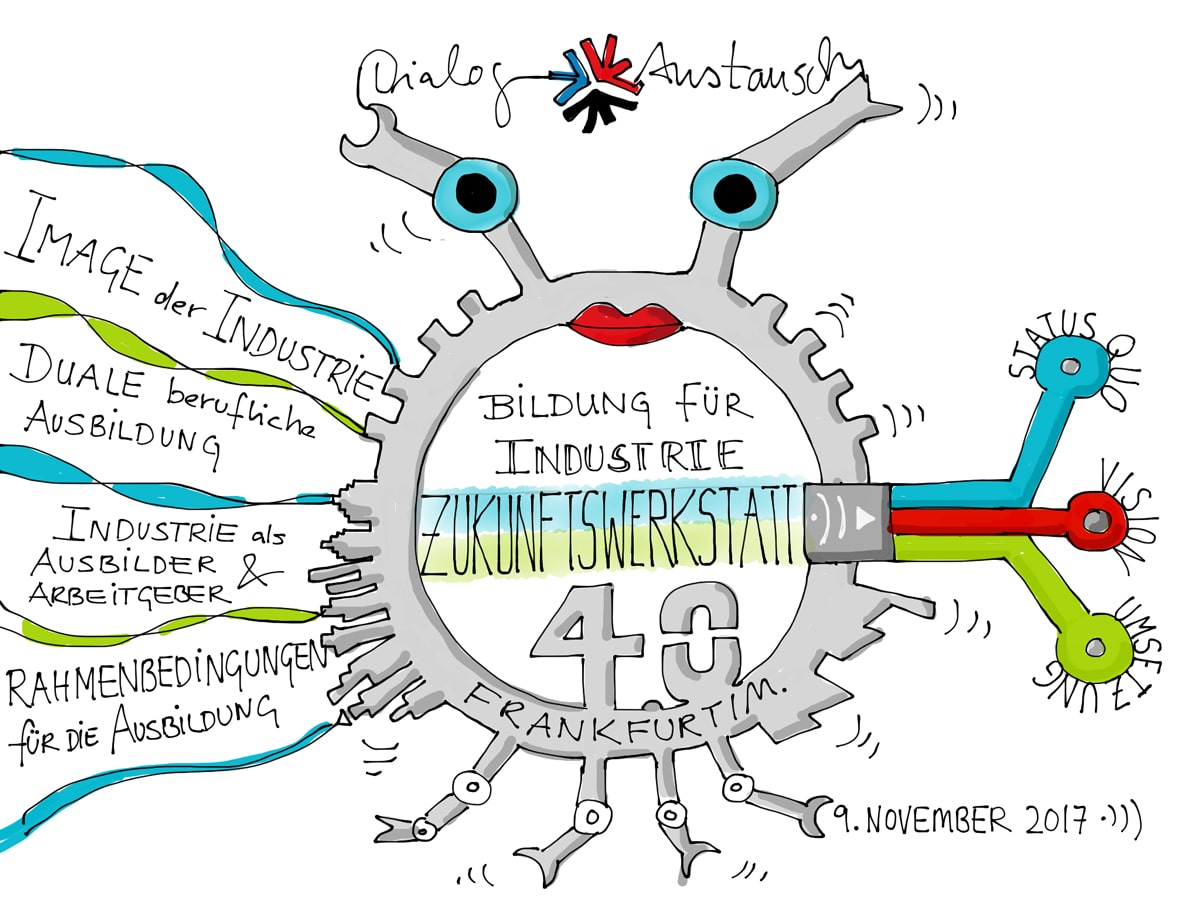 Dialog Austausch
IMAGE der INDUSTRIE
DUALE berufliche
AUSBILDUNG
INDUSTRIE als
AUSBILDER &
ARBEITGEBER
RAHMENBEDINGUNGEN
für DIE AUSBILDUNG
BILDUNG FÜR
INDUSTRIE
ZUKUNFTSWERKSTATT
4.0
FRANKFURT I M.
STATUS QUO
VISION
UMSETZUNG
9. NOVEMBER 2017